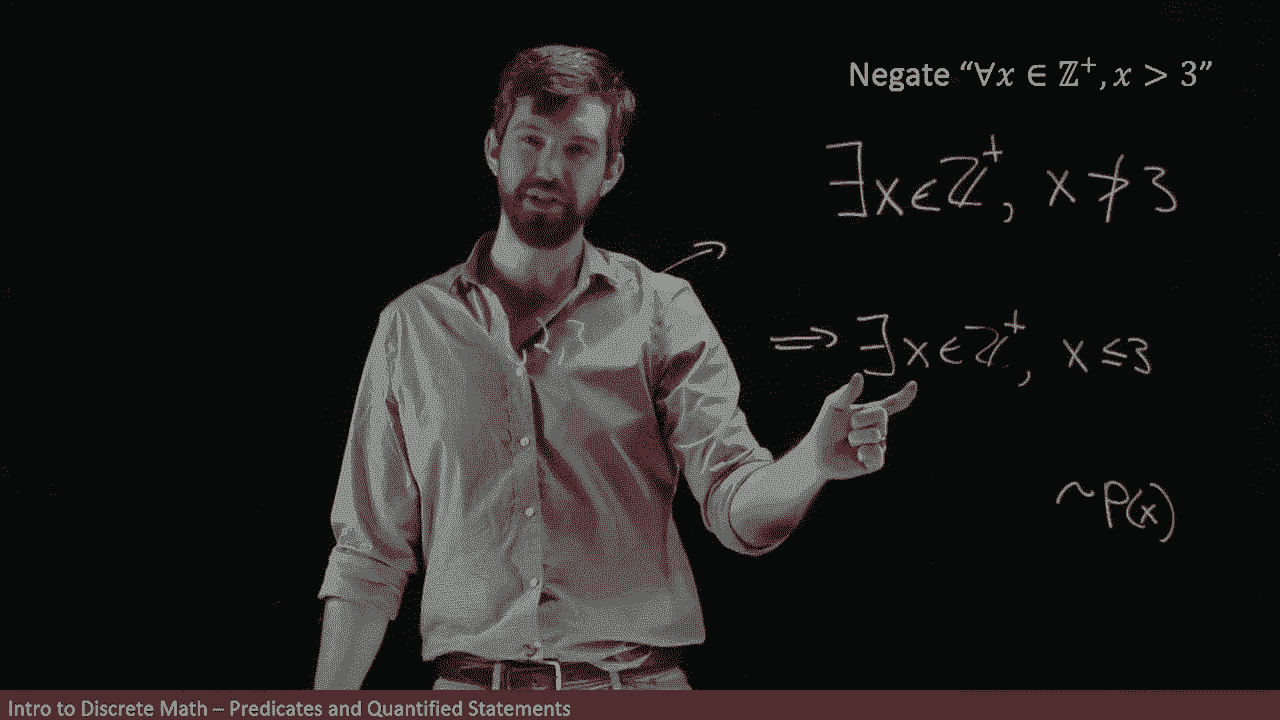 Negate “∀x ∈ ℤ⁺, x > 3”
∃x∈ℤ⁺, x ≯ 3
⇒ ∃x∈ℤ⁺, x ≤ 3
~P(x)
Intro to Discrete Math – Predicates and Quantified Statements